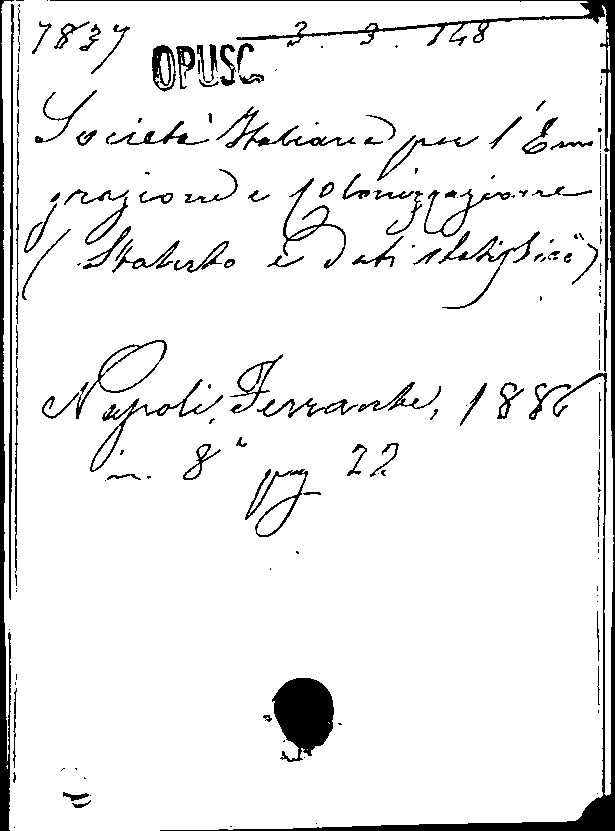 7837 3. 3. 148
OPUSC.
Società Italiana per l'Emi
grazione e Colonizzazione
(Statuto e Dati statistici)
Napoli, Ferrante, 1886
in. 8° pag 22